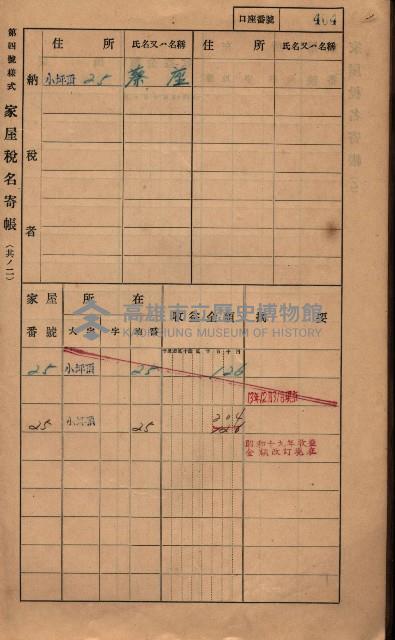 口座番號 404
第四號樣式 家屋稅名寄帳 (共ノ二)
住所 氏名又ハ名稱 住所 氏名又ハ名稱
納稅者
小坪頂 25 蔡座
家屋番號 所在 收益金額 摘要
大字 字 地番
25 小坪頂 25 126
13年12月31日現在
25 小坪頂 25 204
126
昭和十九年收益
金額改訂現在
高雄市立歷史博物館
KAOHSIUNG MUSEUM OF HISTORY